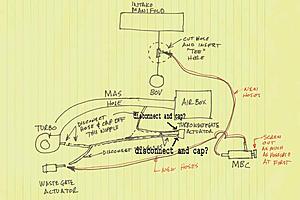 INTAKE
MANIFOLD
CUT HOSE
AND INSERT
"TEE"
HERE
BOV
MAS
HOLE
AIR BOX
disconnect and cap?
TURBO
DISCONNECT
HOSE & CAP OFF
THIS NIPPLE
ACTUATOR
disconnect and cap?
DISCONNECT
NEW
HOSES
NEW HOSES
WASTEGATE
ACTUATOR
MBC
SCREW
OUT
AS MUCH
AS POSSIBLE
AT FIRST